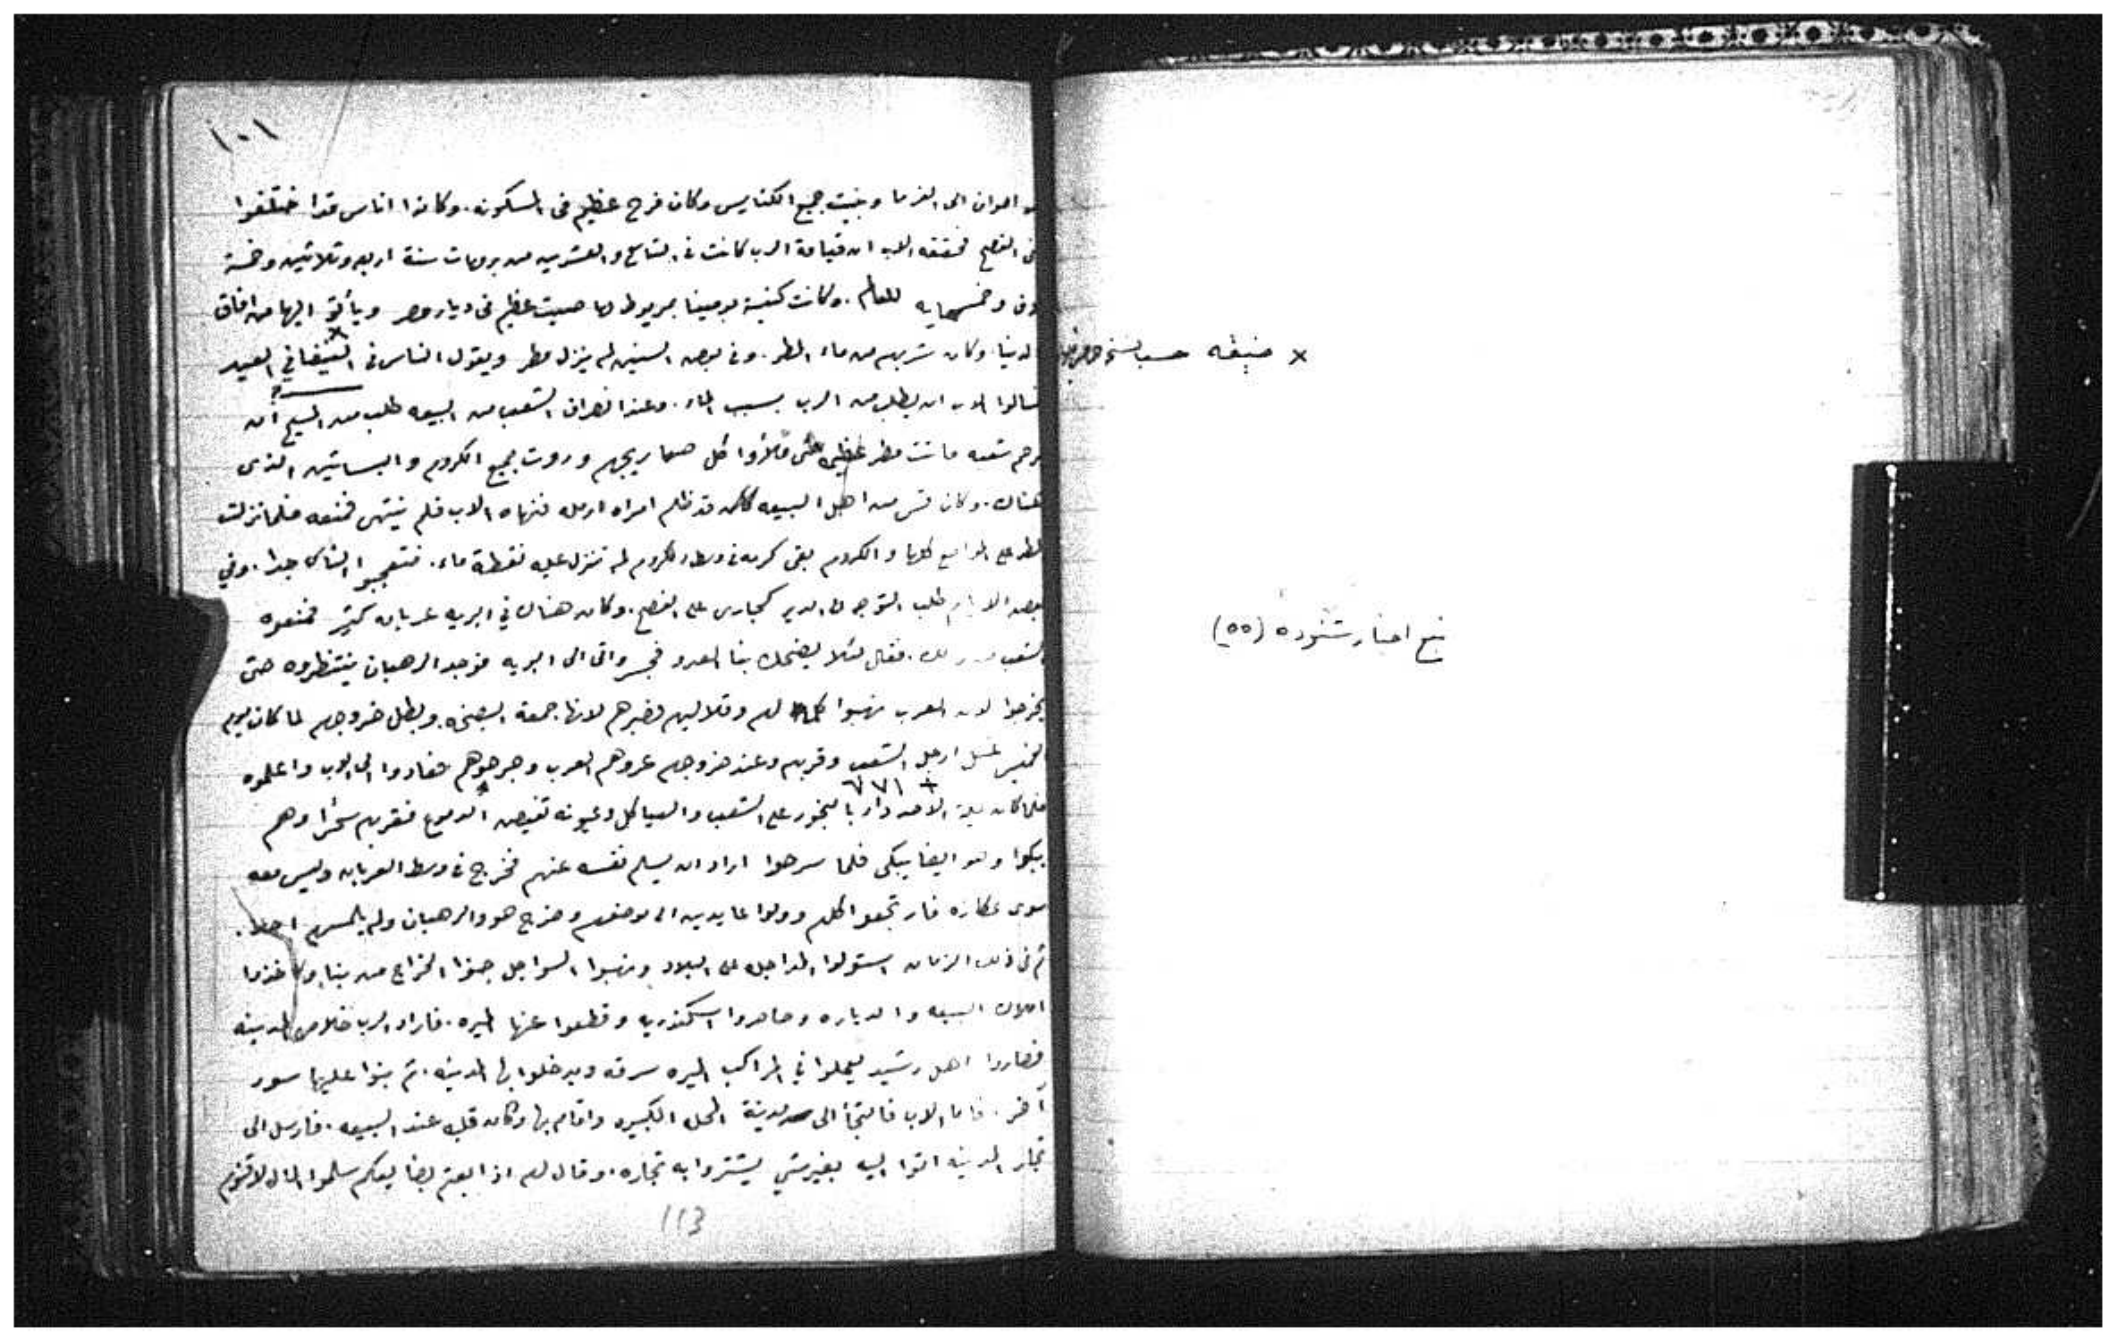 ١٠١
اسوان الى الفرما وبنيت جميع الكنايس وكان فرح عظيم فى المسكونه. وكانوا اناس قد اختلفوا
فى الفصح فحققه الاب ان قيامة الرب كانت فى التاسع والعشرين من برمهات سنة اربعه وتلاتين وخمسة
وخمسمايه للعالم. وكانت كنيسة بومينا بمريوط لها صيت عظيم فى ديار مصر ويأتو اليها من افاق
الدنيا وكان شربهم من ماء المطر. وفى بعض السنين لم ينزل مطر ويقول الناس فى العيد
فسالوا الاب ان يطلب من الرب بسبب الماء. وعند انصراف الشعب من البيعه طلب من المسيح ان
يرحم شعبه مطر عظيم حتى ملأوا كل صهاريجهم وروت جميع الكروم والبساتين الذى
هناك. وكان قس من اهل البيعه قد ظلم امراه ارمله فنهاه الاب فلم ينتهى فمنعه فلما نزلت
المطر على المواضع كلها والكروم بقى كرمه فى وسط الكروم لم تنزل عليه نقطة ماء. فتعجبوا الناس جدا. وفي
بعض الايام طلب التوجه الى الدير كجارى على الفصح. وكان هناك في البريه عربان كتير فمنعوه
الشعب من ذلك. فقال لئلا يضحك بنا العدو فجسر واتى الى البريه فوجد الرهبان ينتظروه حتى
يخرجوا لان العرب نهبوا كلما لهم وقلاليهم فصبرهم لانها جمعة البصخه وبطل خروجهم لما كان يوم
الخميس غسل ارجل الشعب وقربهم وعند خروجهم عروهم العرب وجرحوهم فعادوا الى الاب واعلموه
+ ٧٧١
فلما كان ليلة الاحد دار بالبخور على الشعب والهياكل وعيونه تفيض الدموع فقربهم سحرا وهم
يبكوا وهو ايضا يبكى فلما سرحوا اراد ان يسلم نفسه عنهم فخرج فى وسط العربان وليس معه
سوى عكازه فارتجعوا كلهم وولوا عايدين الى موضعهم وخرج هو والرهبان ولم يلمسهم احد.
ثم فى ذلك الزمان استولوا المداجله على البلاد ونهبوا السواحل جبوا الخراج من بنا واخذوا
املاك البيعه والدياره وحاصروا اسكندريه وقطعوا عنها الميره. فاراد الرب خلاص المدينه
فصاروا اهل رشيد يعملوا في المراكب الميره سرقه ويدخلوا بها المدينه. ثم بنوا عليها سور
آخر. فاما الاب فالتجأ الى مدينة المحله الكبيره واقام بها وكان قلبه عند البيعه. فارسل الى
تجار المدينه اتوا اليه بغير شي يشتروا به تجاره. وقال لهم اذا ابعتم بضايعكم سلموا المال
113
× ضيقه حسب
تبع اخبار شنوده (٥٥)